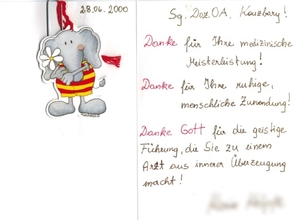 28.06.2000
Sg. Doz. OA. Kauzbary!
Danke für Ihre medizinische
Meisterleistung!
Danke für Ihre ruhige,
menschliche Zuwendung!
Danke Gott für die geistige
Führung, die Sie zu einem
Arzt aus innerer Überzeugung
macht!